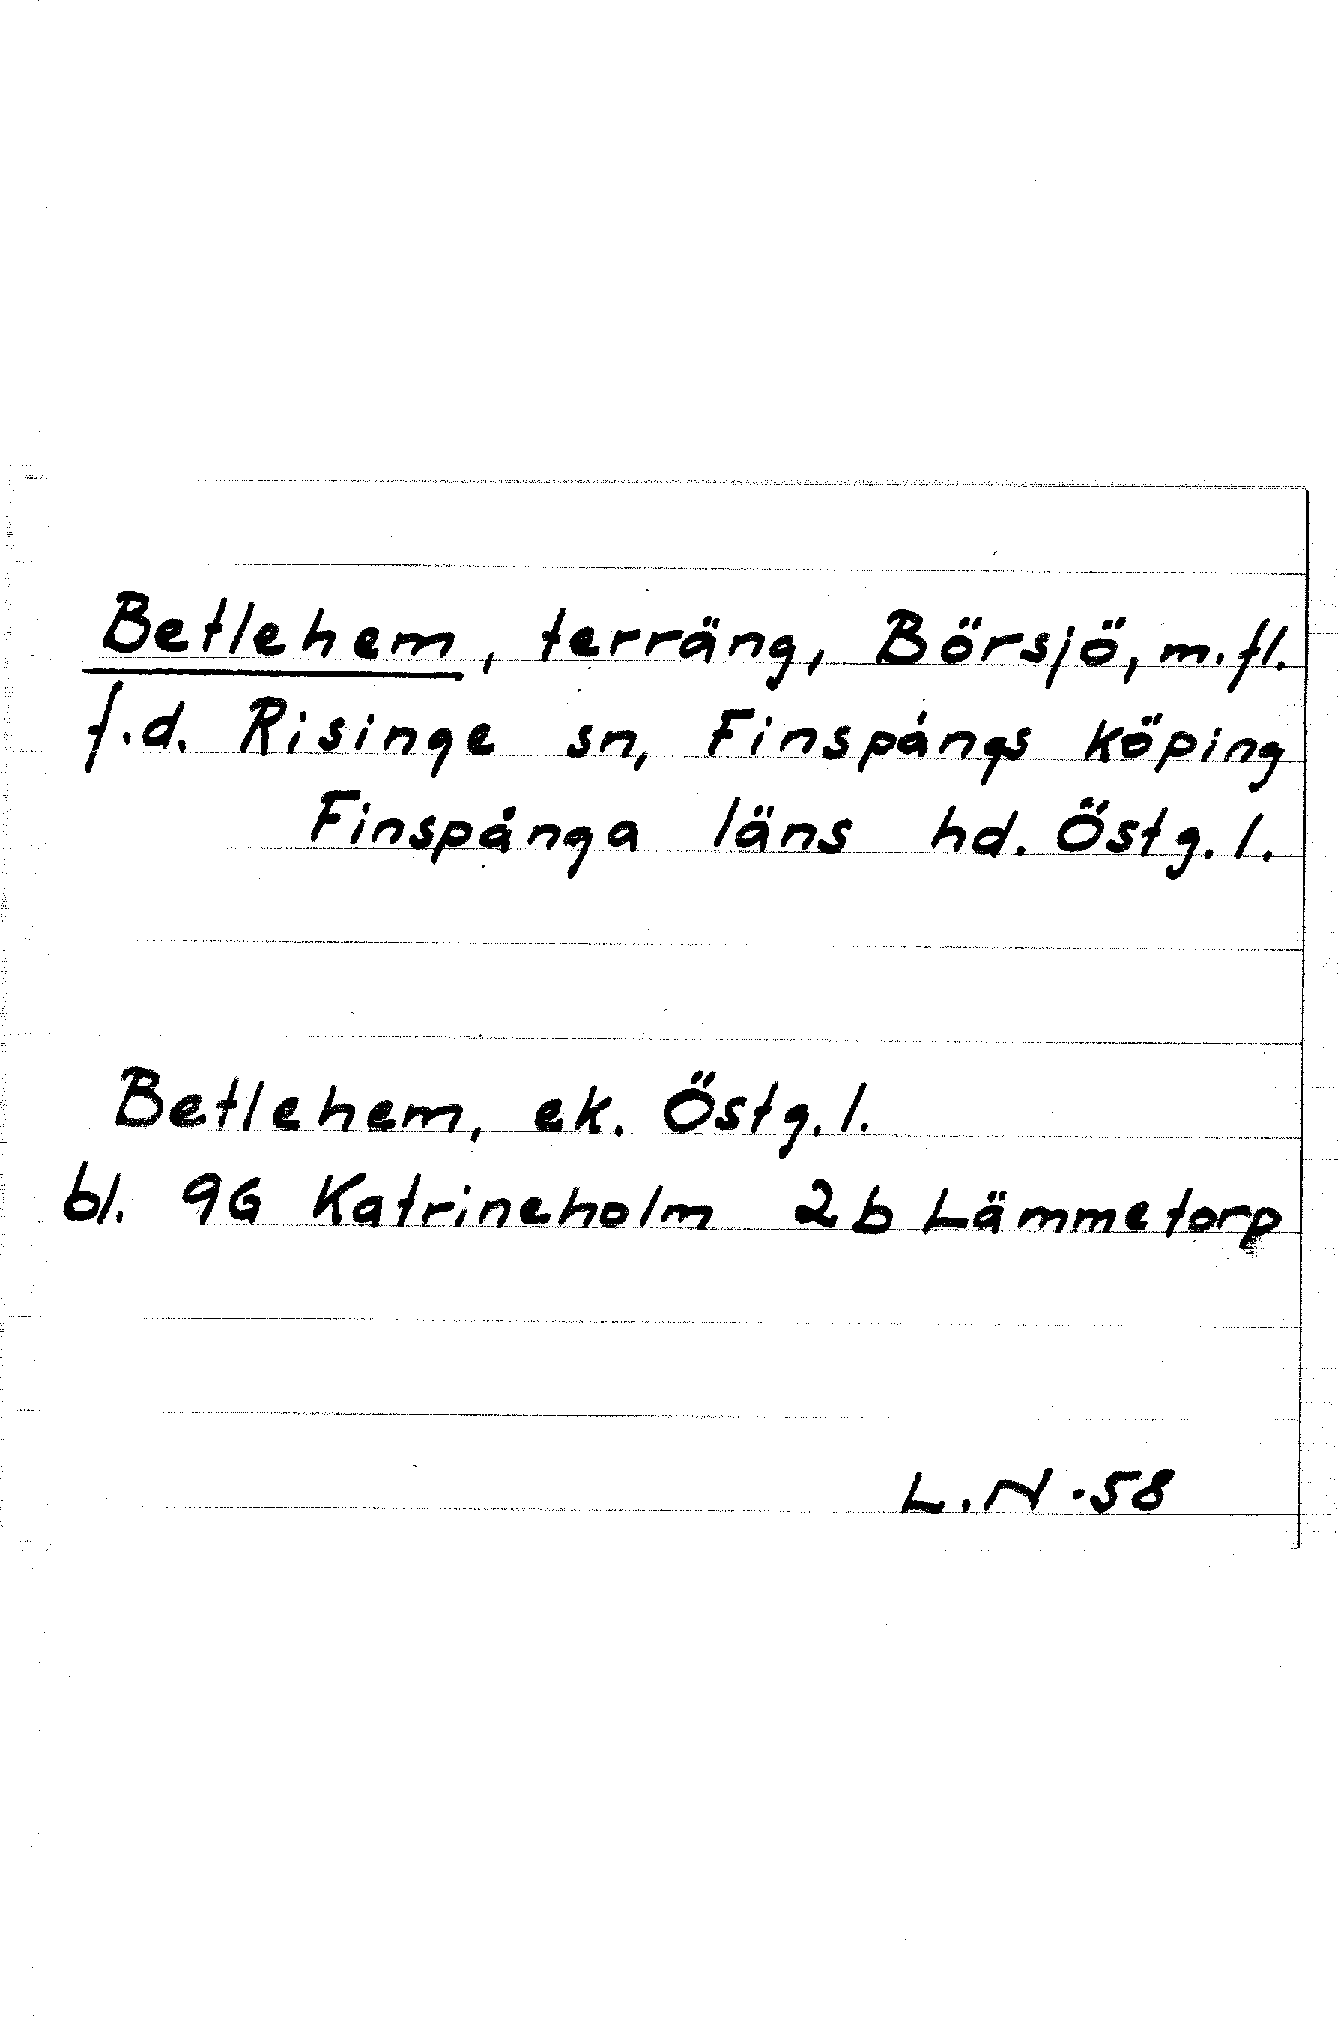 Betlehem, terräng, Börsjö, m.fl.
f.d. Risinge sn, Finspångs köping
Finspånga läns hd. Östg.l.
Betlehem, ek. Östg.l.
bl. 9G Katrineholm 2b Lämmetorp
L.N.58